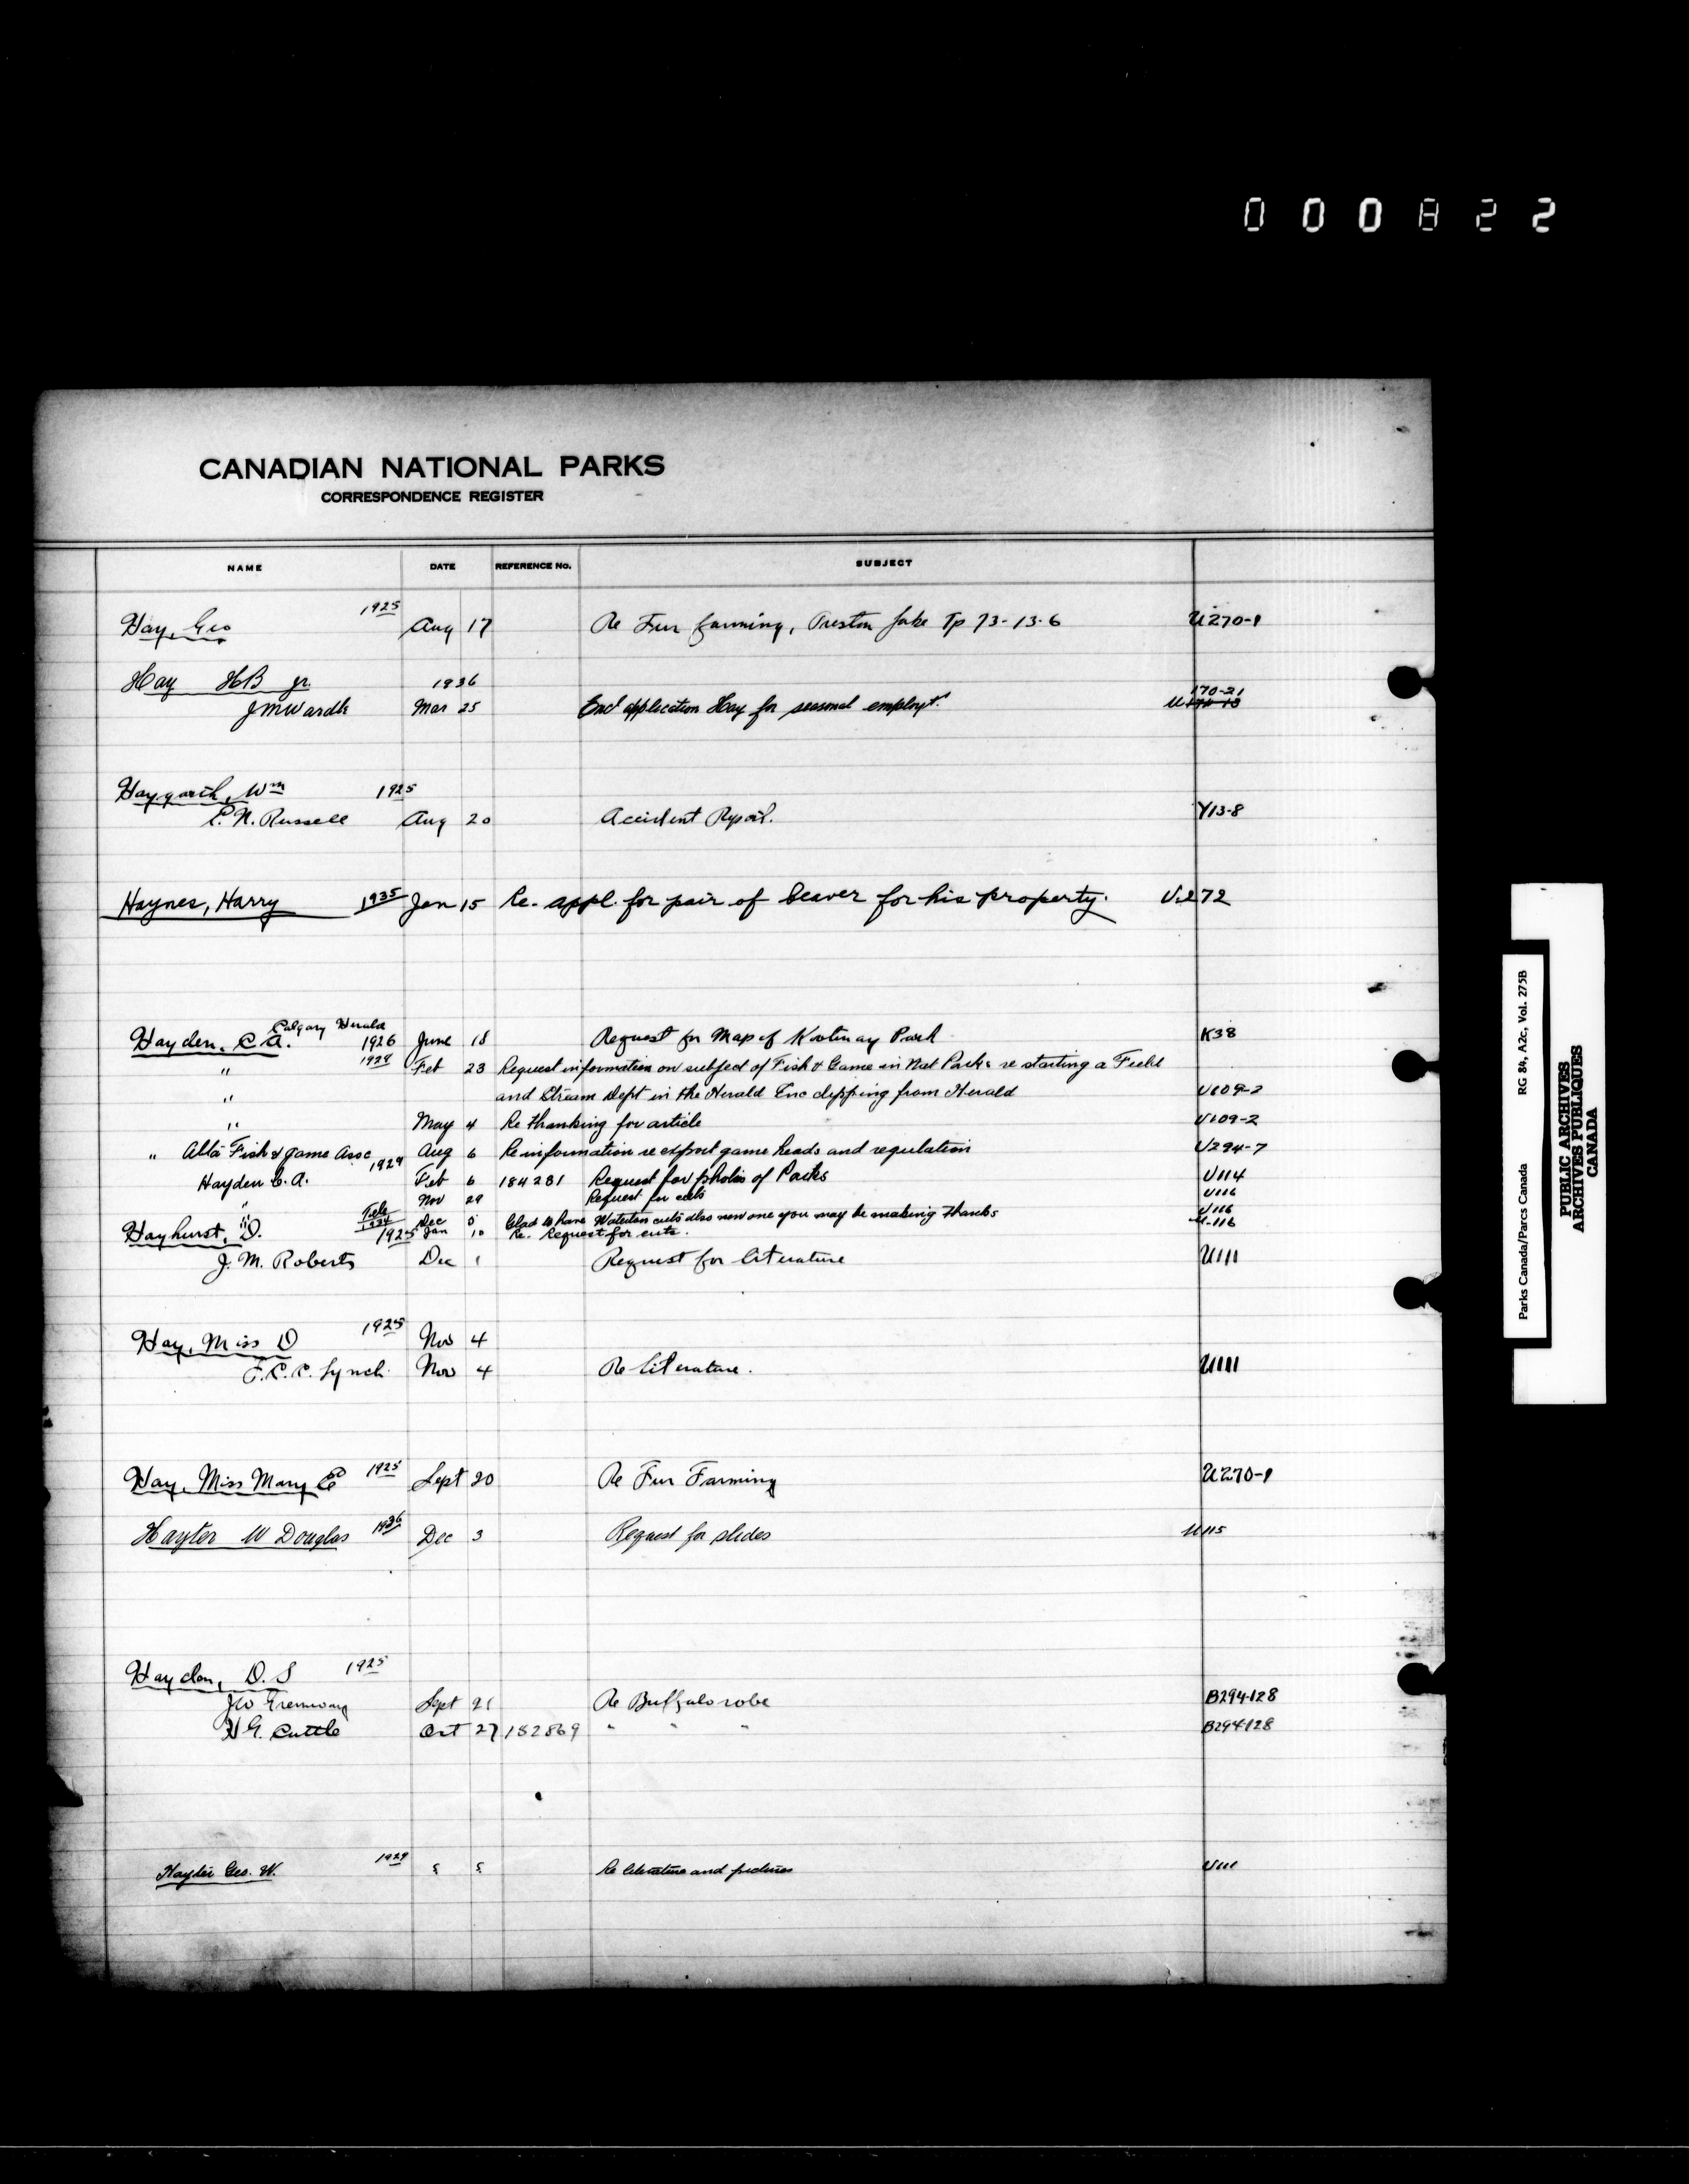 000822
CANADIAN NATIONAL PARKS
CORRESPONDENCE REGISTER
NAME DATE REFERENCE No. SUBJECT
Hay, Geo 1925 Aug 17 Re Fur farming, Preston Lake Tp 73-13-6 U270-1
Hay HB jr. 1936 170-21
JMWardle Mar 25 Encl application Hay for seasonal employt. U
Haygarth, Wm 1925
C. N. Russell Aug 20 Accident Report. Y13-8
Haynes, Harry 1935 Jan 15 Re. appl. for pair of beaver for his property. U272
Calgary Herald
Hayden, C A. 1926 June 18 Request for Map of Kootenay Park K38
" Feb 23 Request information on subject of Fish & Game in Nat Parks re starting a Field
" and Stream Dept in the Herald Enc clipping from Herald U109-2
" May 4 Re thanking for article U109-2
" Alta Fish & game Assc Aug 6 Re information re export game heads and regulation U294-7
Hayden C. A. 1929 Feb 6 184281 Request for photos of Parks U114
" Nov 29 Request for cuts U116
" Dec Glad to have Waterton cuts also new one you may be making Thanks U116
Hayhurst, D. 1925 Jan 10 Re. Request for cuts. U-116
J. M. Roberts Dec 1 Request for literature U111
Hay, Miss D 1925 Nov 4
F.C.C. Lynch. Nov 4 Re literature. U111
Hay, Miss Mary E 1925 Sept 20 Re Fur Farming U270-1
Hayter W Douglas 1936 Dec 3 Request for slides U115
Haydon, D. S 1925
JW Greenway Sept 21 Re Buffalo robe B294-128
HG. Cuttle Oct 27 182869 " " " B294-128
Geo. W. 1929 5 5 Re literature and pictures U111
Parks Canada/Parcs Canada RG 84, A2c, Vol. 275B
PUBLIC ARCHIVES
ARCHIVES PUBLIQUES
CANADA